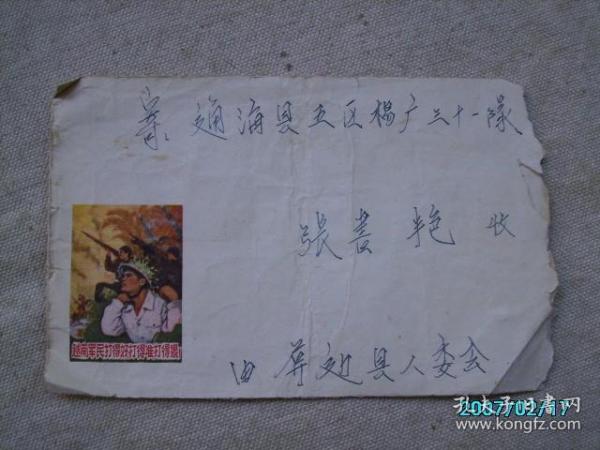 寄 通海县五区杨广三十一隊
張喜艳 收
越南军民打得好打得准打得狠
由 县人委会
2007/02/17
孔夫子旧书网
www.kongfz.com